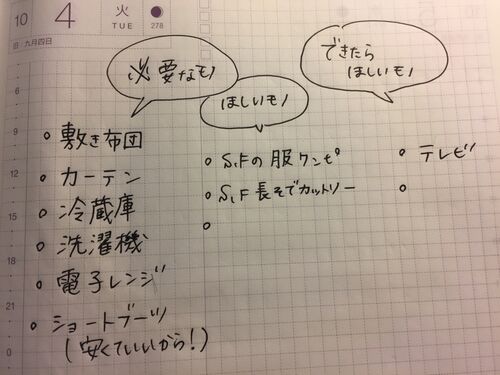 10 4 火
TUE 278
旧 九月四日
必要なモノ
ほしいモノ
できたら
ほしいモノ
9
12
15
18
21
0
○ 敷き布団
○ カーテン
○ 冷蔵庫
○ 洗濯機
○ 電子レンジ
○ ショートブーツ
(安くていいから!)
○ S,Fの服ワンピ
○ S,F 長そでカットソー
○
○ テレビ
○